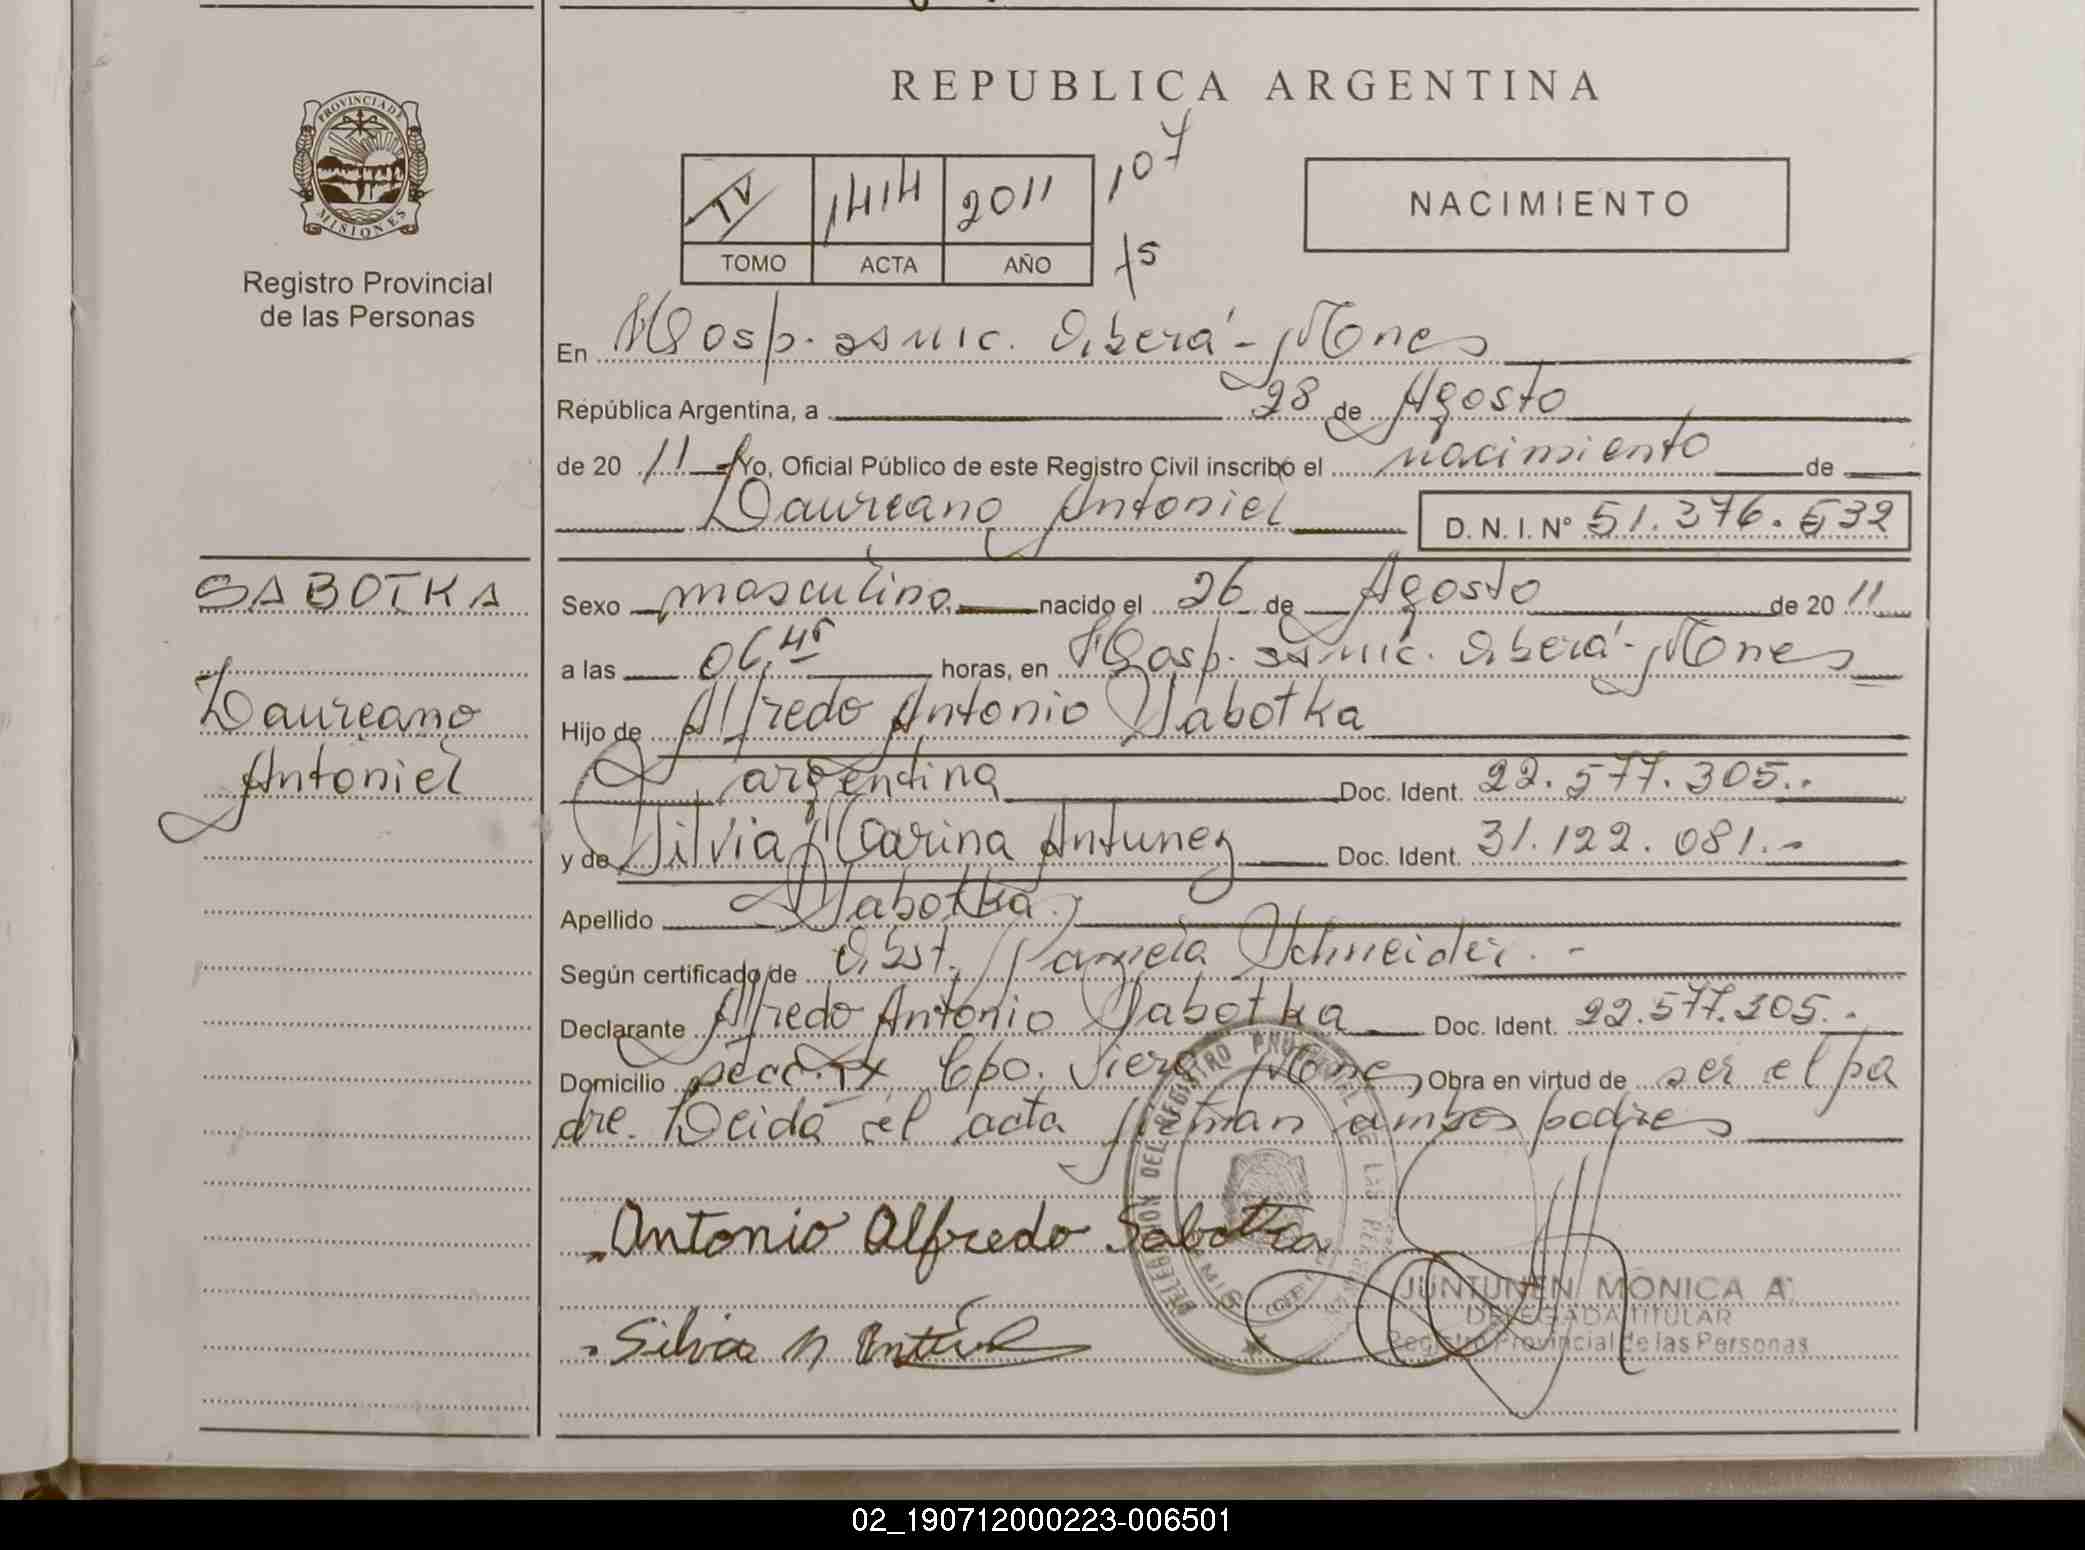 REPUBLICA ARGENTINA
PROVINCIA DE MISIONES
Registro Provincial
de las Personas
IV 1414 2011 107
TOMO ACTA AÑO 75
NACIMIENTO
En Hosp. SAMIC. Oberá - Mones
República Argentina, a 28 de Agosto
de 20 11 Yo, Oficial Público de este Registro Civil inscribo el nacimiento de
Laureano Antoniel D. N. I. Nº 51.376.532
SABOTKA
Laureano
Antoniel
Sexo masculino nacido el 26 de Agosto de 20 11
a las 06,45 horas, en Hosp. SAMIC. Oberá - Mones
Hijo de Alfredo Antonio Sabotka
argentina Doc. Ident. 22.577.305.-
y de Silvia Marina Antunez Doc. Ident. 31.122.081.-
Apellido Sabotka
Según certificado de Obst. Pamela Schneider.-
Declarante Alfredo Antonio Sabotka Doc. Ident. 22.577.305.-
Domicilio Secc. IX Cpo. Viera Mones, Obra en virtud de ser el pa
dre. Leida el acta firman ambos padres
Antonio Alfredo Sabotka
Silvia M
DELEGACION DEL REGISTRO PROVINCIAL DE LAS PERSONAS
JUNTUNEN MONICA A.
DELEGADA TITULAR
Registro Provincial de las Personas
02_190712000223-006501